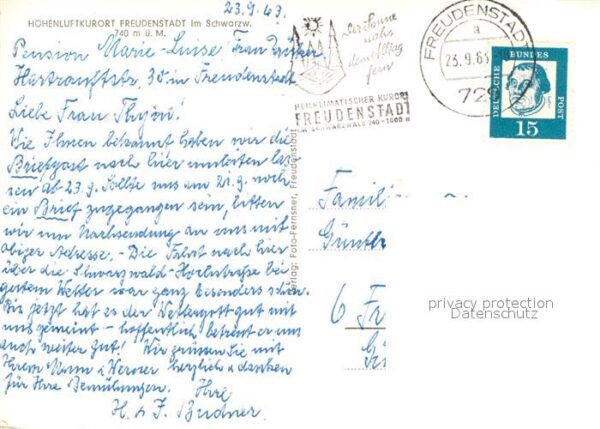 23.9.63.
HÖHENLUFTKURORT FREUDENSTADT im Schwarzw.
740 m ü. M.
Pension Marie-Luise Frau
Hartranftstr. 30 in Freudenstadt
Liebe Frau
Wie Ihnen bekannt haben wir die
Briefpost nach hier umleiten las-
sen ab 23.9. Sollte uns am 21.9. noch
ein Brief zugegangen sein, bitten
wir um Nachsendung an uns mit
obiger Adresse. - Die Fahrt nach hier
über die Schwarzwald-Hochstraße bei
gutem Wetter war ganz besonders schön.
Bis jetzt hat es der Wettergott gut mit
uns gemeint - hoffentlich betreut er uns
auch weiter gut! Wir grüssen Sie mit
Ihrem Mann u. Werner herzlich u. danken
für Ihre Bemühungen. Ihre
H. u. F. Budner
Verlag: Foto-Fernsner, Freudenstadt
Der Sonne
nahs
dem Alltag
fern
HEILKLIMATISCHER KURORT
FREUDENSTADT
IM SCHWARZWALD 740-1000 m
FREUDENSTADT
a
23.9.63
729
DEUTSCHE BUNDES POST
15
Famili
Günth
6 Fr
privacy protection
Datenschutz